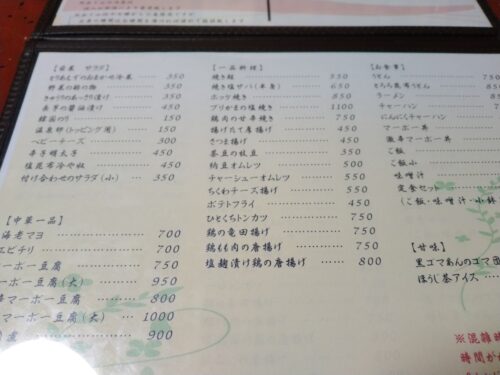 【前菜 サラダ】
とりあえずのおまかせ冷菜 350
野菜の酢の物 350
きゅうりのあっさり漬け 350
長芋の醤油漬け 450
韓国のり 150
温泉卵(トッピング用) 150
ベビーチーズ 300
辛子明太子 450
塩昆布冷や奴 450
付け合わせのサラダ(小) 350
【中華一品】
海老マヨ 700
エビチリ 700
ーボー豆腐 750
ーボー豆腐(大) 950
マーボー豆腐 800
マーボー豆腐(大) 1000
900
【一品料理】
焼き餃 550
焼き塩サバ(半身) 650
ホッケ焼き 850
ブリかまの塩焼き 1100
鶏肉の甘辛焼き 750
揚げたて厚揚げ 450
さつま揚げ 450
茶豆の枝豆 350
納豆オムレツ 550
チャーシューオムレツ 550
ちくわチーズ揚げ 550
ポテトフライ 450
ひとくちトンカツ 750
鶏の竜田揚げ 750
鶏もも肉の唐揚げ 750
塩麹漬け鶏の唐揚げ 800
【お食事】
うどん
とろろ昆布うどん
ラーメン
チャーハン
にんにくチャーハン
マーボー丼
激辛マーボー丼
ご飯
ご飯小
味噌汁
定食セット
(ご飯・味噌汁・小鉢
【甘味】
黒ゴマあんのゴマ団
ほうじ茶アイス
※混雑時
時間がか